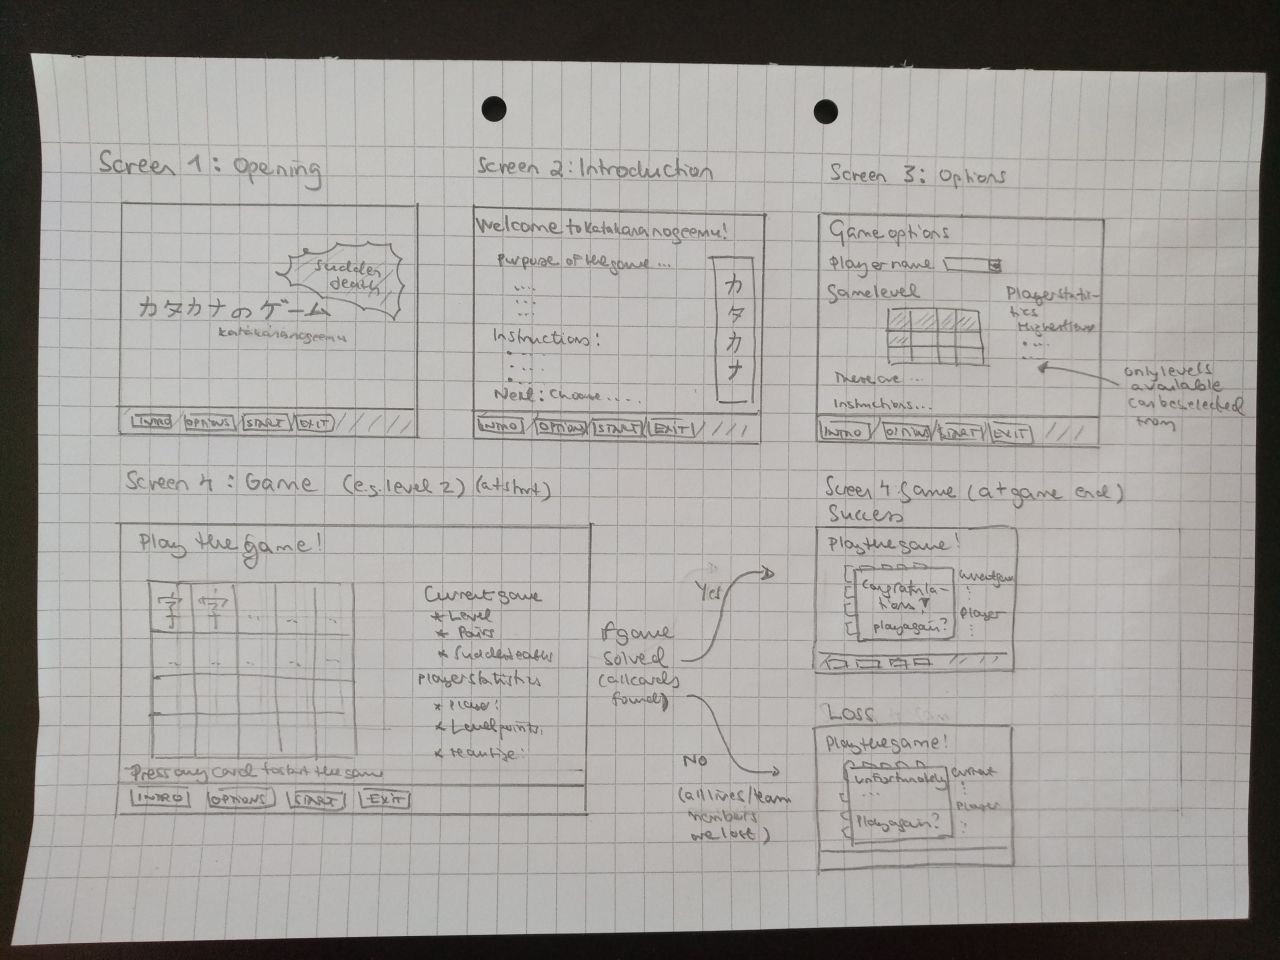 Screen 1: Opening
sudden
death
カタカナのゲーム
katakananogeemu
INTRO OPTIONS START EXIT
Screen 2: Introduction
Welcome to katakananogeemu!
Purpose of the game ...
....
...
...
Instructions:
• ...
• ....
• ...
Next: Choose .....
カ
タ
カ
ナ
INTRO OPTIONS START EXIT
Screen 3: Options
Game options
Player name
Gamelevel
Player statis-
tics
....
....
There are ...
Instructions...
only levels
available
can be selected
from
INTRO OPTIONS START EXIT
Screen 4: Game (e.g. level 2) (at start)
Play the game!
Current game
* Level
* Pairs
Player statistics
* Level points:
* teamsize:
Press any card to start the game
INTRO OPTIONS START EXIT
If game
solved
(all cards
found)
Yes
No
(all lives/team
members
are lost)
Screen 4: Game (at game end)
Success
Play the game!
Congratula-
tions!
play again?
Current game
⋮
Player
⋮
Loss
Play the game!
Unfortunately
...
Play again?
Current
⋮
Player
⋮